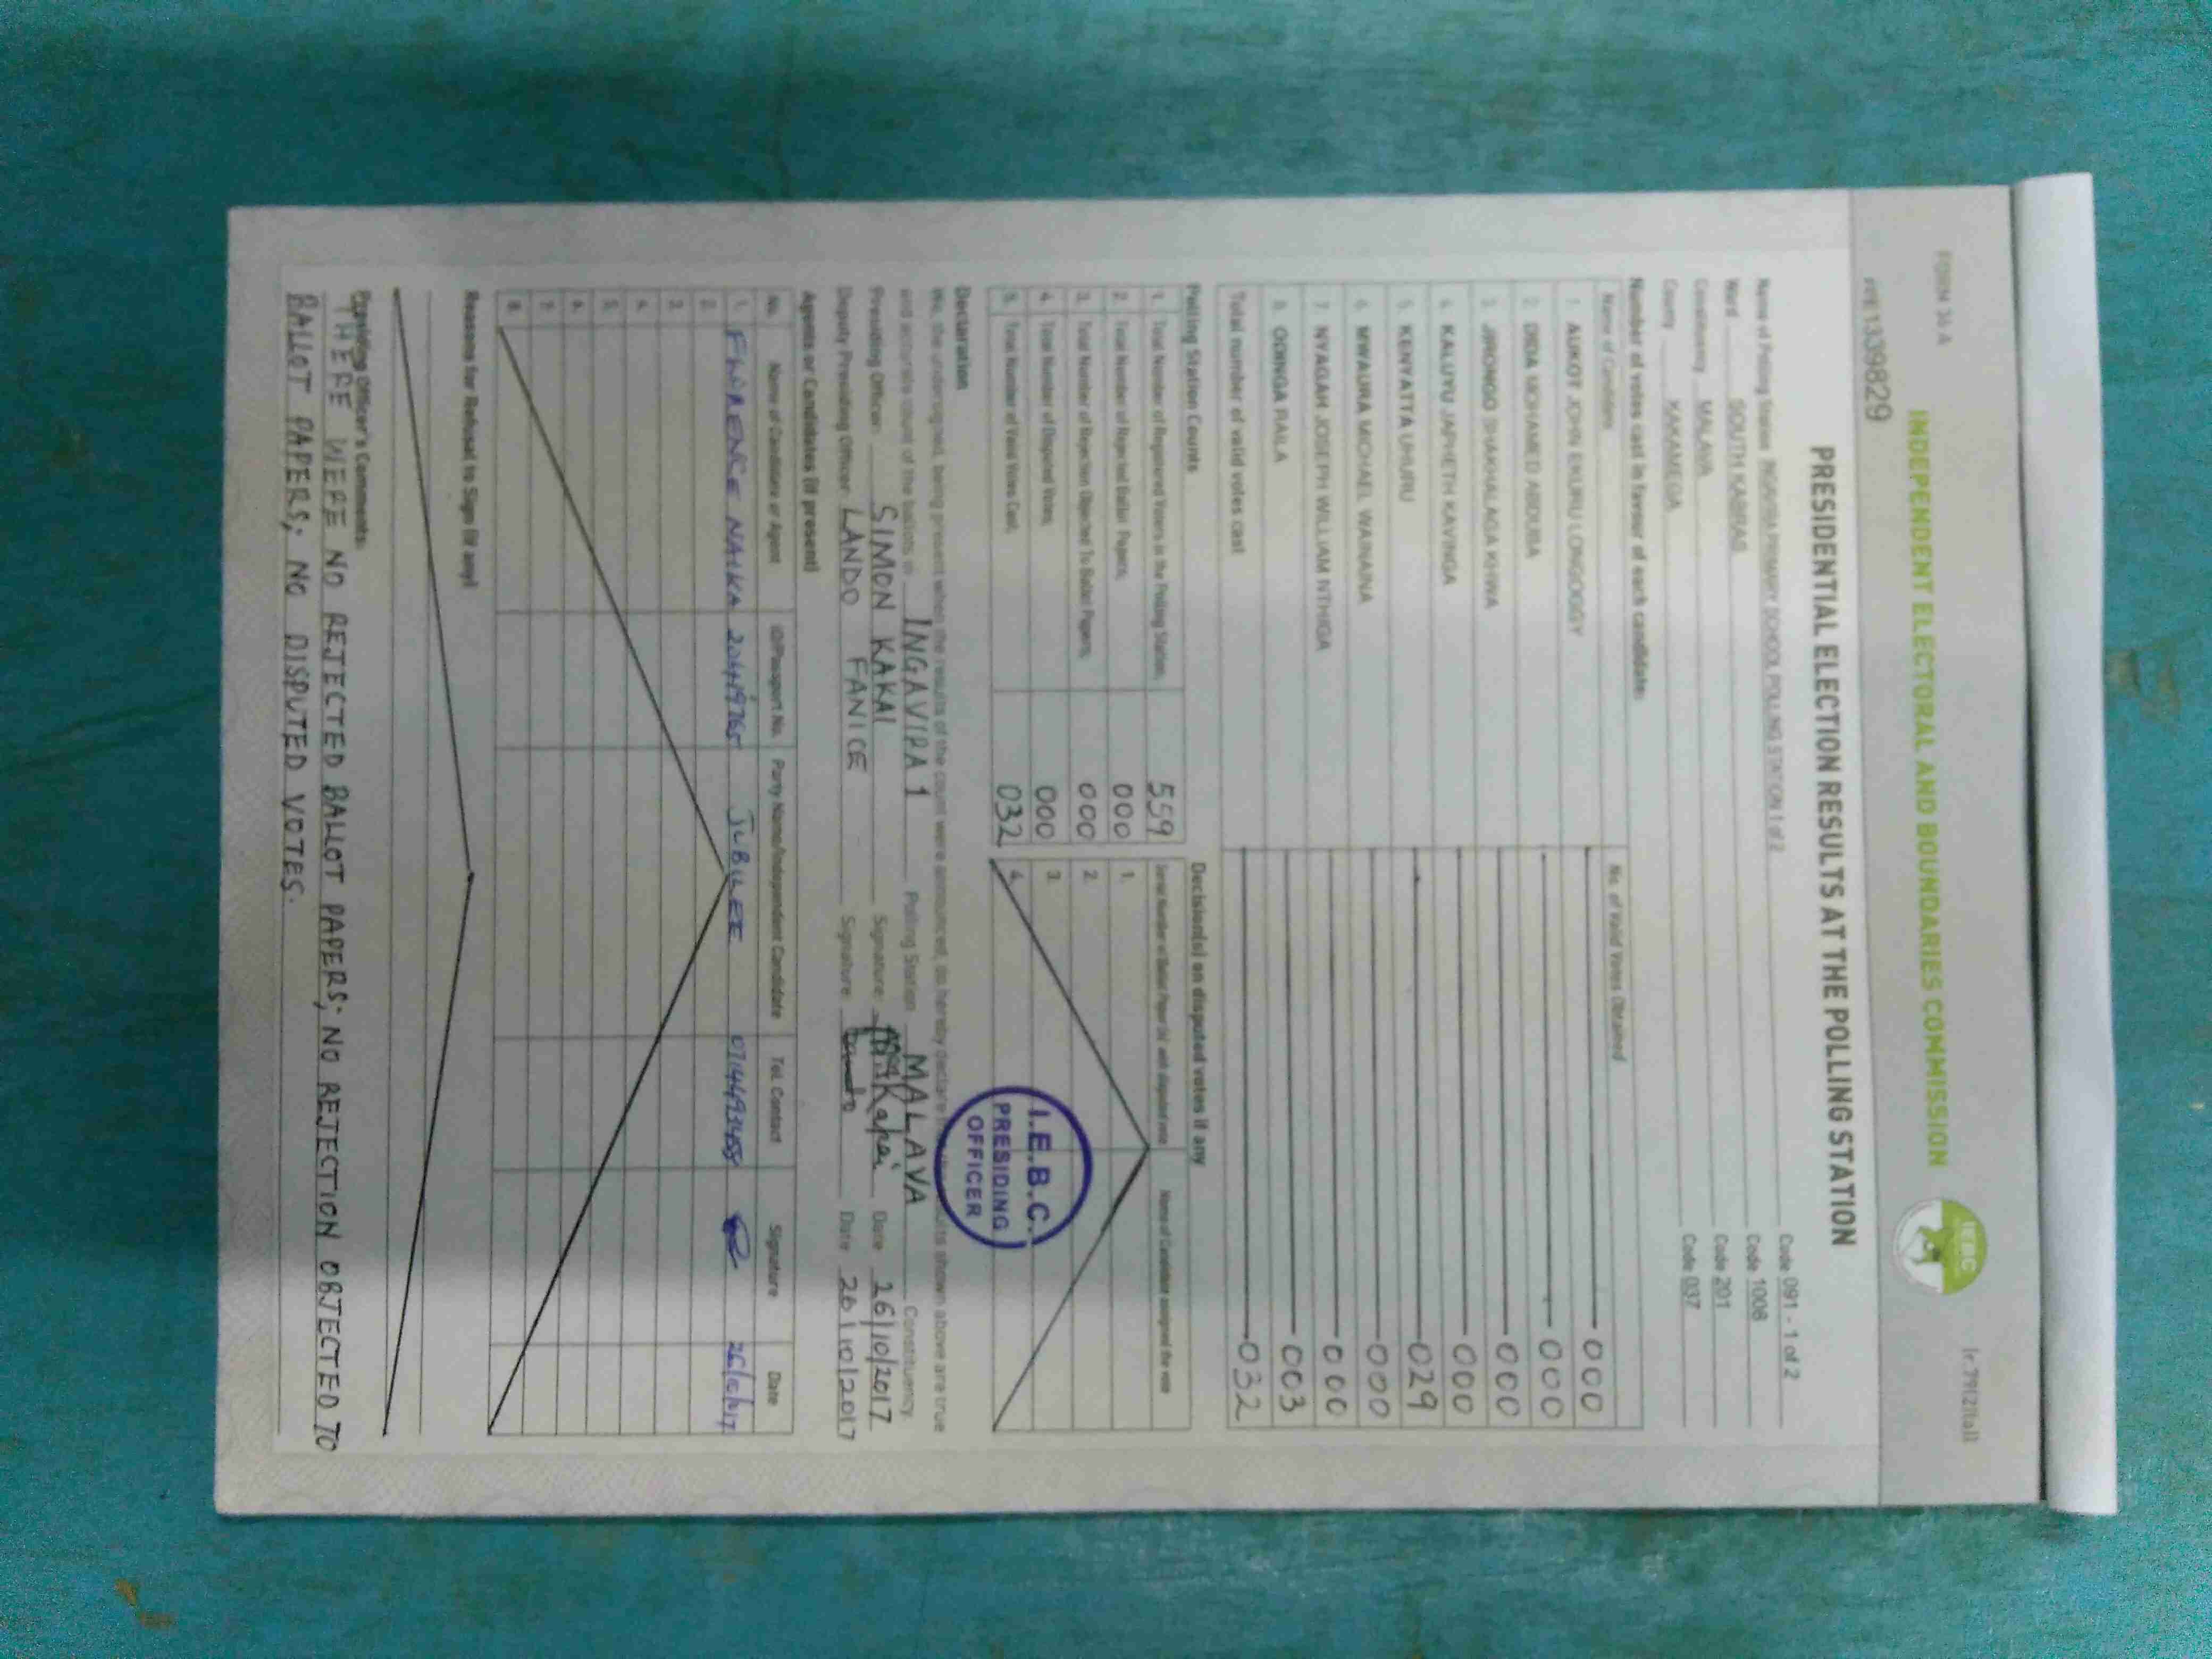 FORM 34 A
INDEPENDENT ELECTORAL AND BOUNDARIES COMMISSION
IEBC
PRE1339829
PRESIDENTIAL ELECTION RESULTS AT THE POLLING STATION
Name of Polling Station INGAVIRA PRIMARY SCHOOL POLLING STATION 1 of 2 Code 091 - 1 of 2
Ward SOUTH KABRAS Code 1008
Constituency MALAVA Code 201
County KAKAMEGA Code 037
Number of votes cast in favour of each candidate:
Name of Candidate No. of Valid Votes Obtained
1. AUKOT JOHN EKURU LONGOGGY 000
2. DIDA MOHAMED ABDUBA 000
3. JIRONGO SHAKHALAGA KHWA 000
4. KALUYU JAPHETH KAVINGA 000
5. KENYATTA UHURU 029
6. MWAURA MICHAEL WAINAINA 000
7. NYAGAH JOSEPH WILLIAM NTHIGA 000
8. ODINGA RAILA 003
Total number of valid votes cast 032
Polling Station Counts
1. Total Number of Registered Voters in the Polling Station 559
2. Total Number of Rejected Ballot Papers 000
3. Total Number of Rejection Objected To Ballot Papers 000
4. Total Number of Disputed Votes 000
5. Total Number of Valid Votes Cast 032
Decision(s) on disputed votes if any
Serial Number of Ballot Paper with disputed vote Name of Candidate assigned the vote
1.
2.
3.
4.
I.E.B.C.
PRESIDING
OFFICER
Declaration
We, the undersigned, being present when the results of the count were announced, do hereby declare shown above are true
and accurate count of the ballots in INGAVIRA 1 Polling Station MALAVA Constituency.
Presiding Officer: SIMON KAKAI Signature: Kakai Date 26/10/2017
Deputy Presiding Officer: LANDO FANICE Signature: Date 26/10/2017
Agents or Candidates (if present)
No. Name of Candidate or Agent ID/Passport No. Party Name/Independent Candidate Tel. Contact Signature Date
1. FLORENCE NALKA JUBILEE
2.
3.
4.
5.
6.
7.
8.
Reasons for Refusal to Sign (if any)
Presiding Officer's Comments:
THERE WERE NO REJECTED BALLOT PAPERS; NO REJECTION OBJECTED TO
BALLOT PAPERS; NO DISPUTED VOTES.